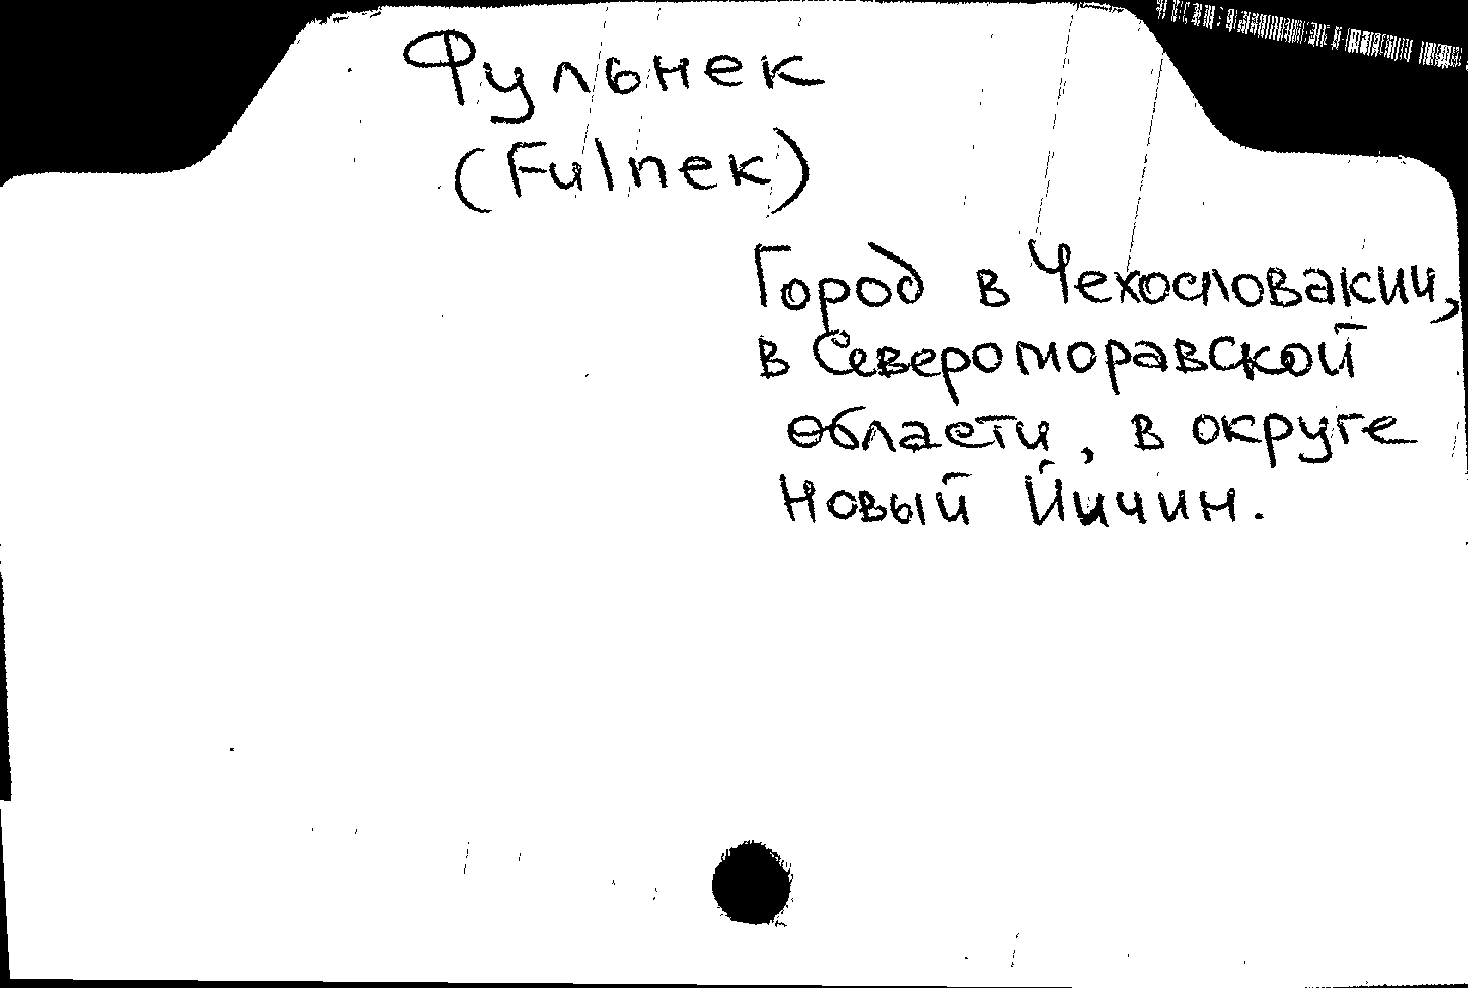 Фульнек
(Fulnek)
Город в Чехословакии,
в Североморавской
области, в округе
Новый Йичин.